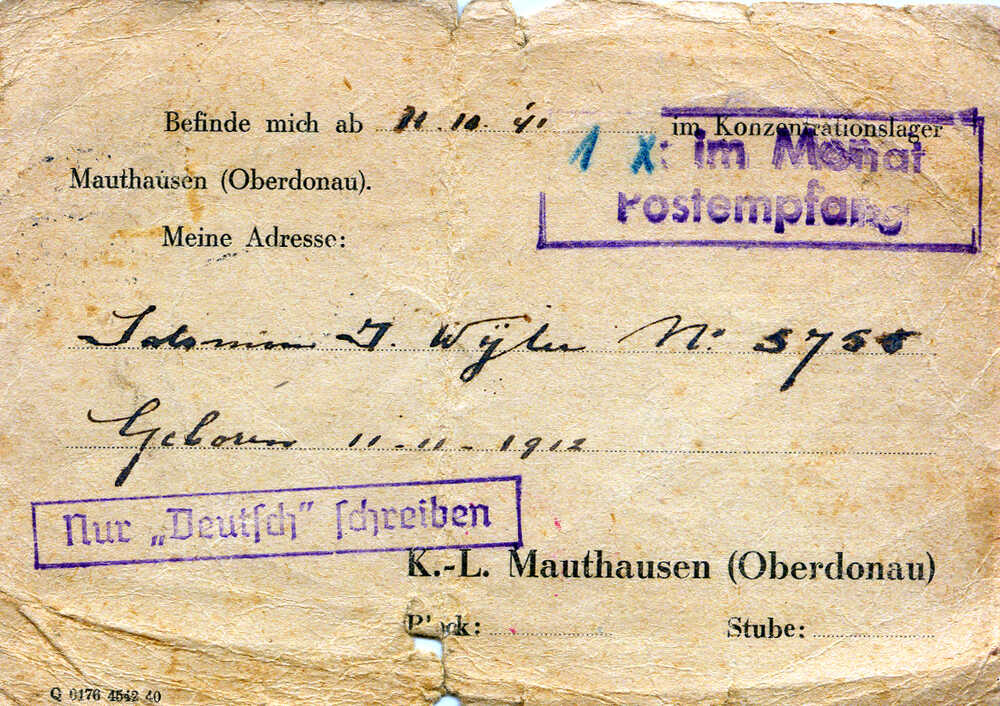 Befinde mich ab 11.10.41 im Konzentrationslager
1 X: im Monat
Mauthausen (Oberdonau).
Postempfang
Meine Adresse:
Salomon J. Wÿler N: 5755
Geboren 11-11-1912
Nur „Deutsch" schreiben
K.-L. Mauthausen (Oberdonau)
Block: Stube:
Q 0176 4542 40